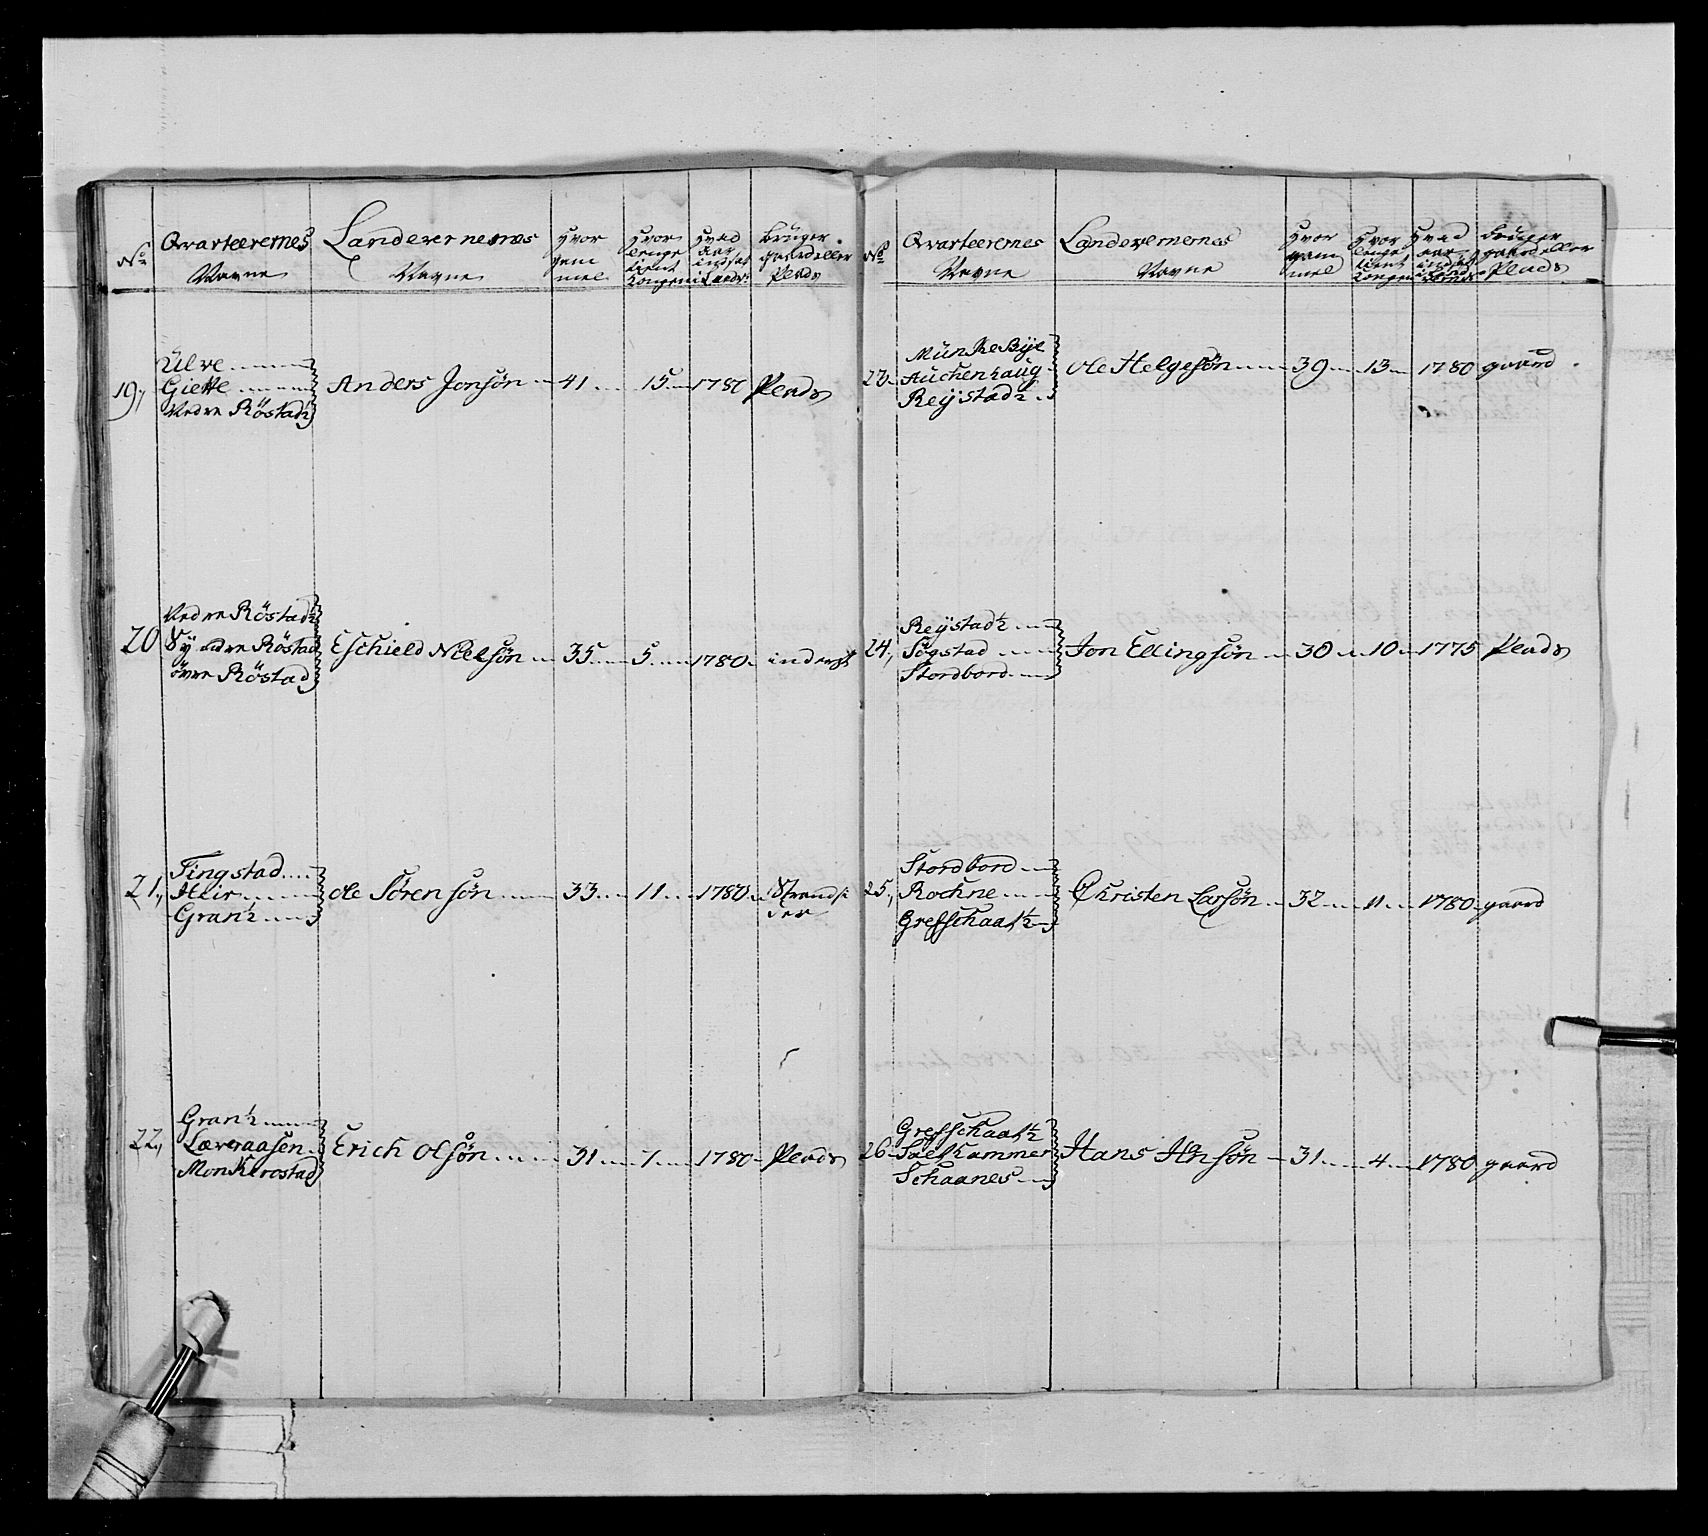 No
Qvarteerernes
Navne
Landevernernes
Navne
Hvor
gam
mel
Hvor
lenge
tient
Kongen
Hvad
Aar
indsat
i Landv:
Brüger
gaard eller
Plads
19,
Ulve
Giette
Nedre Röstad ½
Anders Jonsøn
41
15
1780
Plads
20
Nedre Röstad ½
Syndre Röstad
øvre Röstad
Eschield Nielsøn
35
5
1780
inderst
21,
Tingstad
Heir
Gran ½
Ole Sørensøn
33
11
1780
Strandsi
der
22,
Gran ½
Læeraasen
Monkerostad
Erich Olsøn
31
7
1780
Plads
No
Qvarteerernes
Navne
Landevernernes
Navne
Hvor
gam
mel
Hvor
lenge
tient
Kongen
Hvad
aar
indsat
i Land
Brüger
gaard eller
Plads
23
Münkebye
Auchenhaug
Reystad ½
Ole Helgesøn
39
13
1780
gaard
24,
Reystad ½
Sogstad
Stordbord
Jon Ellingsøn
30
10
1775
Plads
25,
Stordbord
Rochne
Grefschaat ½
Christen Larsøn
32
11
1780
gaard
26
Grefschaat ½
Saelkammer
Schaanes
Hans Hansøn
31
4
1780
gaard